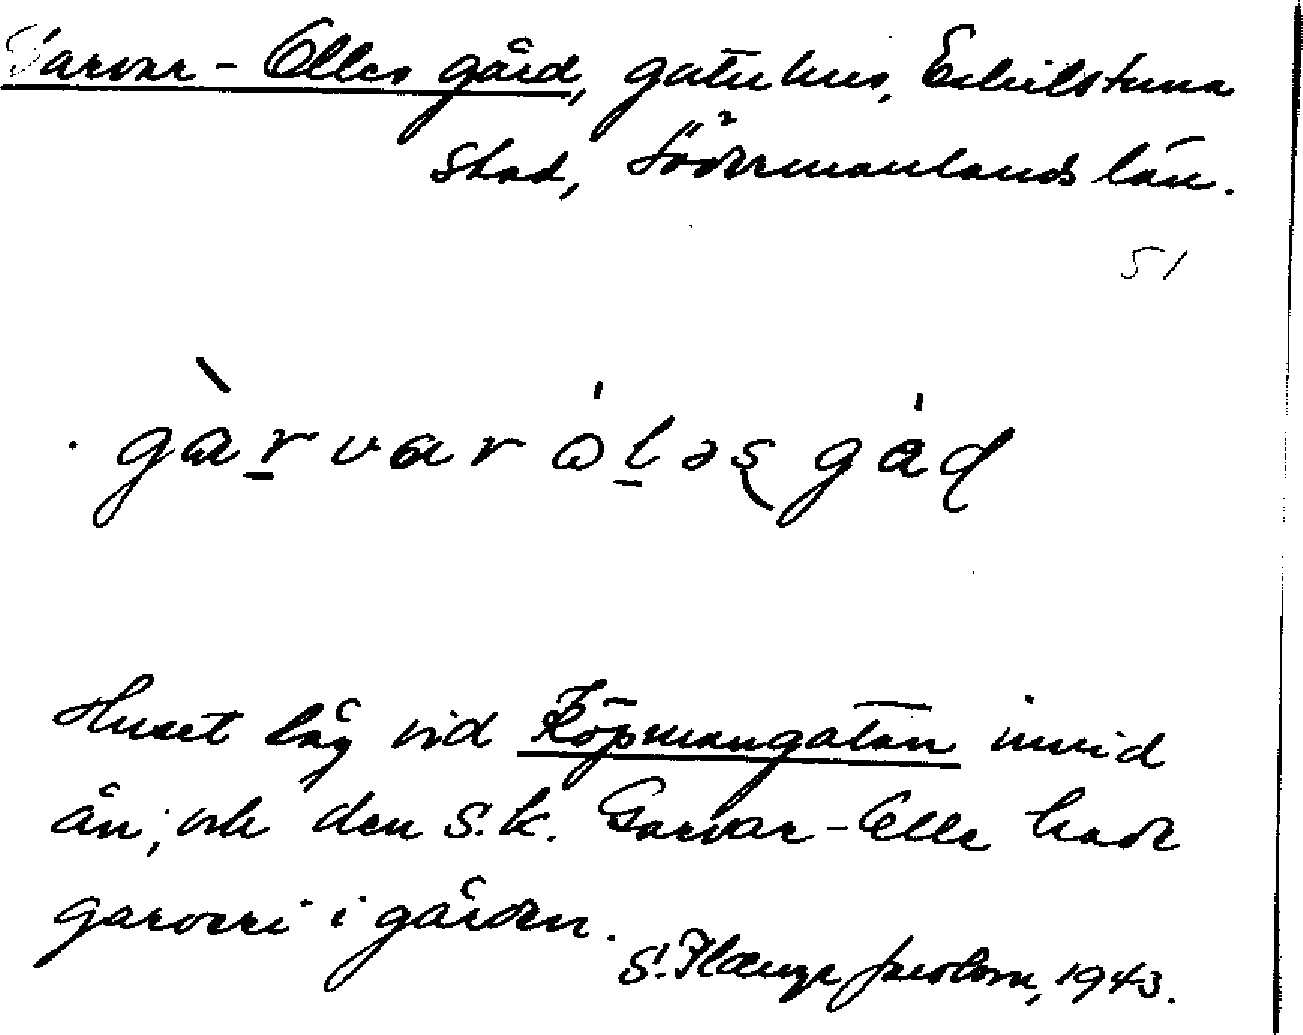 Garvar-Olles gård, gatuhus, Eskilstuna
stad, Södermanlands län.
51
gàrvaróləs gád
Huset låg vid Köpmangatan invid
ån, och den s.k. Garvar-Olle hade
garveri i gården.
S. 1943.